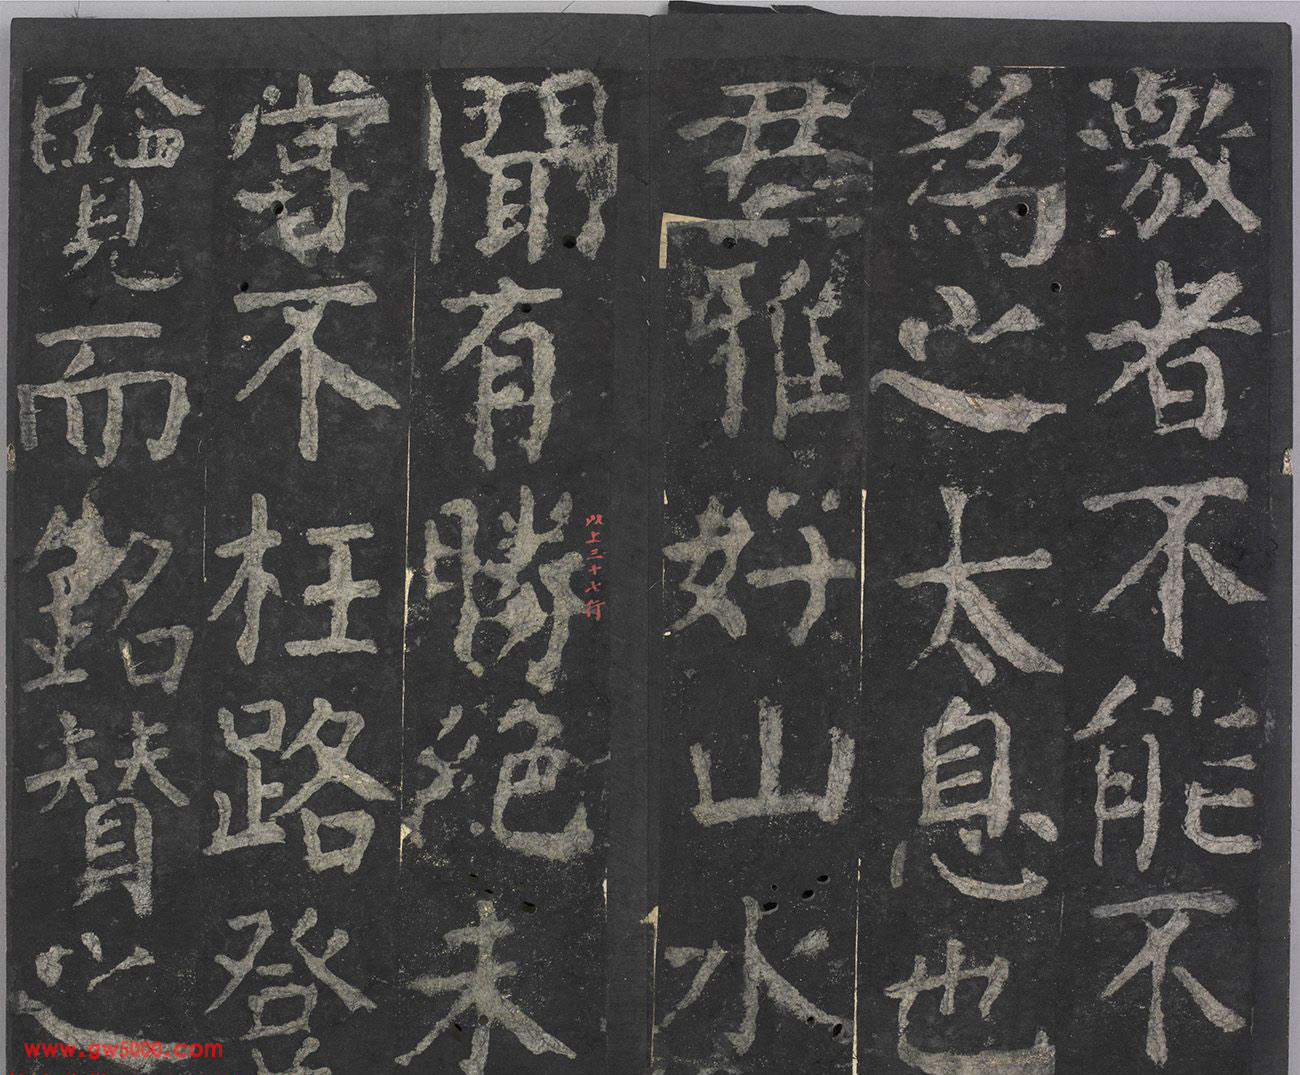 激者不能不
為之太息也
君雅好山水
聞有勝絕未
嘗不枉路登
覽而銘贊之
以上三十七行
www.gw5000.com